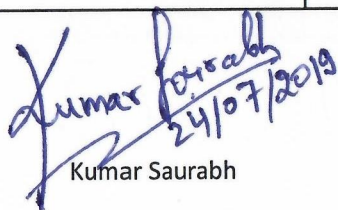 Kumar Sourabh
24/07/2019
Kumar Saurabh